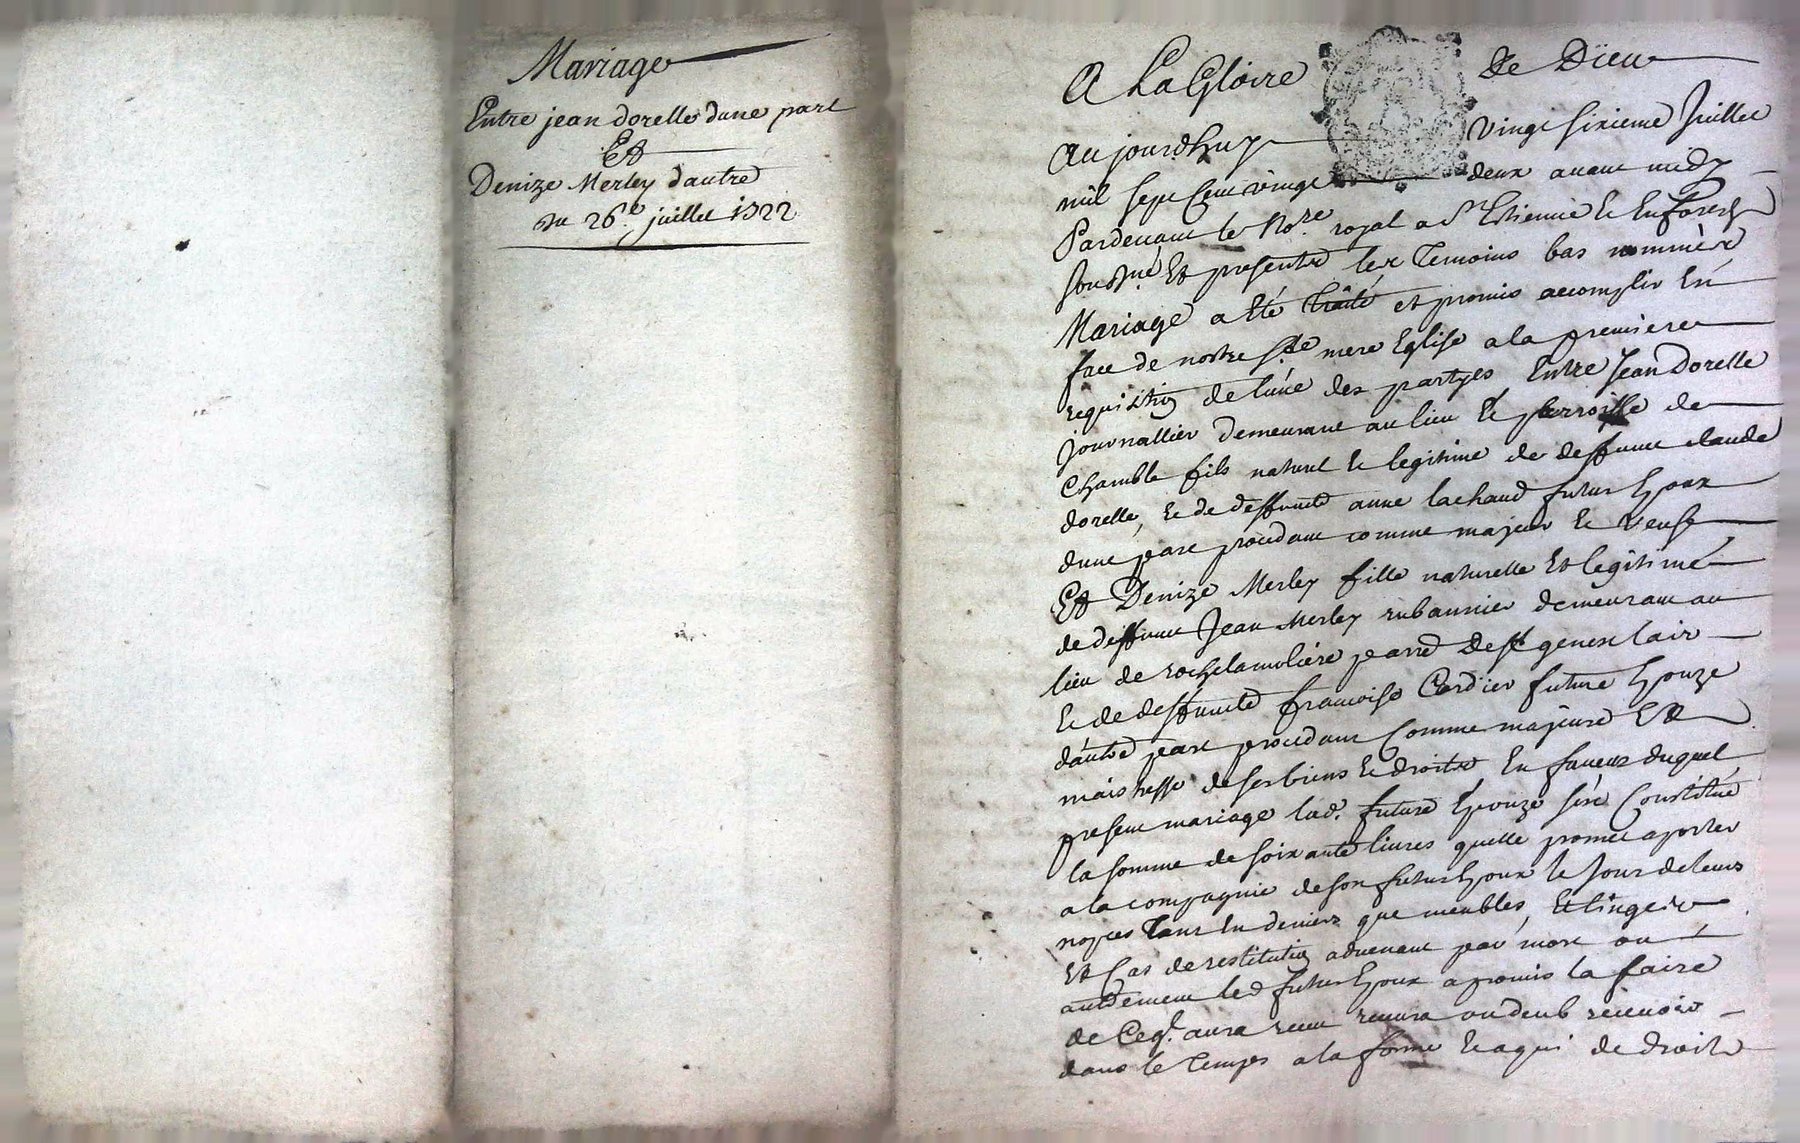 Mariage
Entre jean dorelle dune part
Et
Denize Merley dautre
du 26.e juillet 1722
A La Gloire de Dieu
Aujourdhuy vingt sixieme Juillet
mil sept Cent vingt deux avant midy
Pardevant le No.re royal a St Estienne En forest
soussné Et presents les Temoins bas nommés
Mariage a Eté traité et promis accomplir En
face de nostre s.te mere Eglise a la premiere
requisition de lune des partyes Entre Jean Dorelle
journallier demeurant au lieu Et parroisse de
Chamble fils naturel Et legitime de deffunt claude
dorelle, Et de deffunte anne lachaud futur Epoux
dune part procedant comme majeur Et veuf
Et Denize Merley fille naturelle Et legitime
de deffunt Jean Merley rubannier demeurant au
lieu de rochelamolière parr de st genest lair
Et de deffunte francoise Cordier future Epouze
dautre part procedant Comme majeure Et
maistresse de ses biens Et droits En faveur duquel
present mariage lad. future Epouze sest Constitué
la somme de soixante livres quelle promet aporter
a la compagnie de son futur Epoux le jour de leurs
nopces tant En deniers que meubles, Et linges
Et Cas de restitution advenant par mort ou
autrement led futur Epoux a promis la faire
de Ceq.l aura receu recevra ou deub recevoir
dans le temps a la forme Et a qui de droit